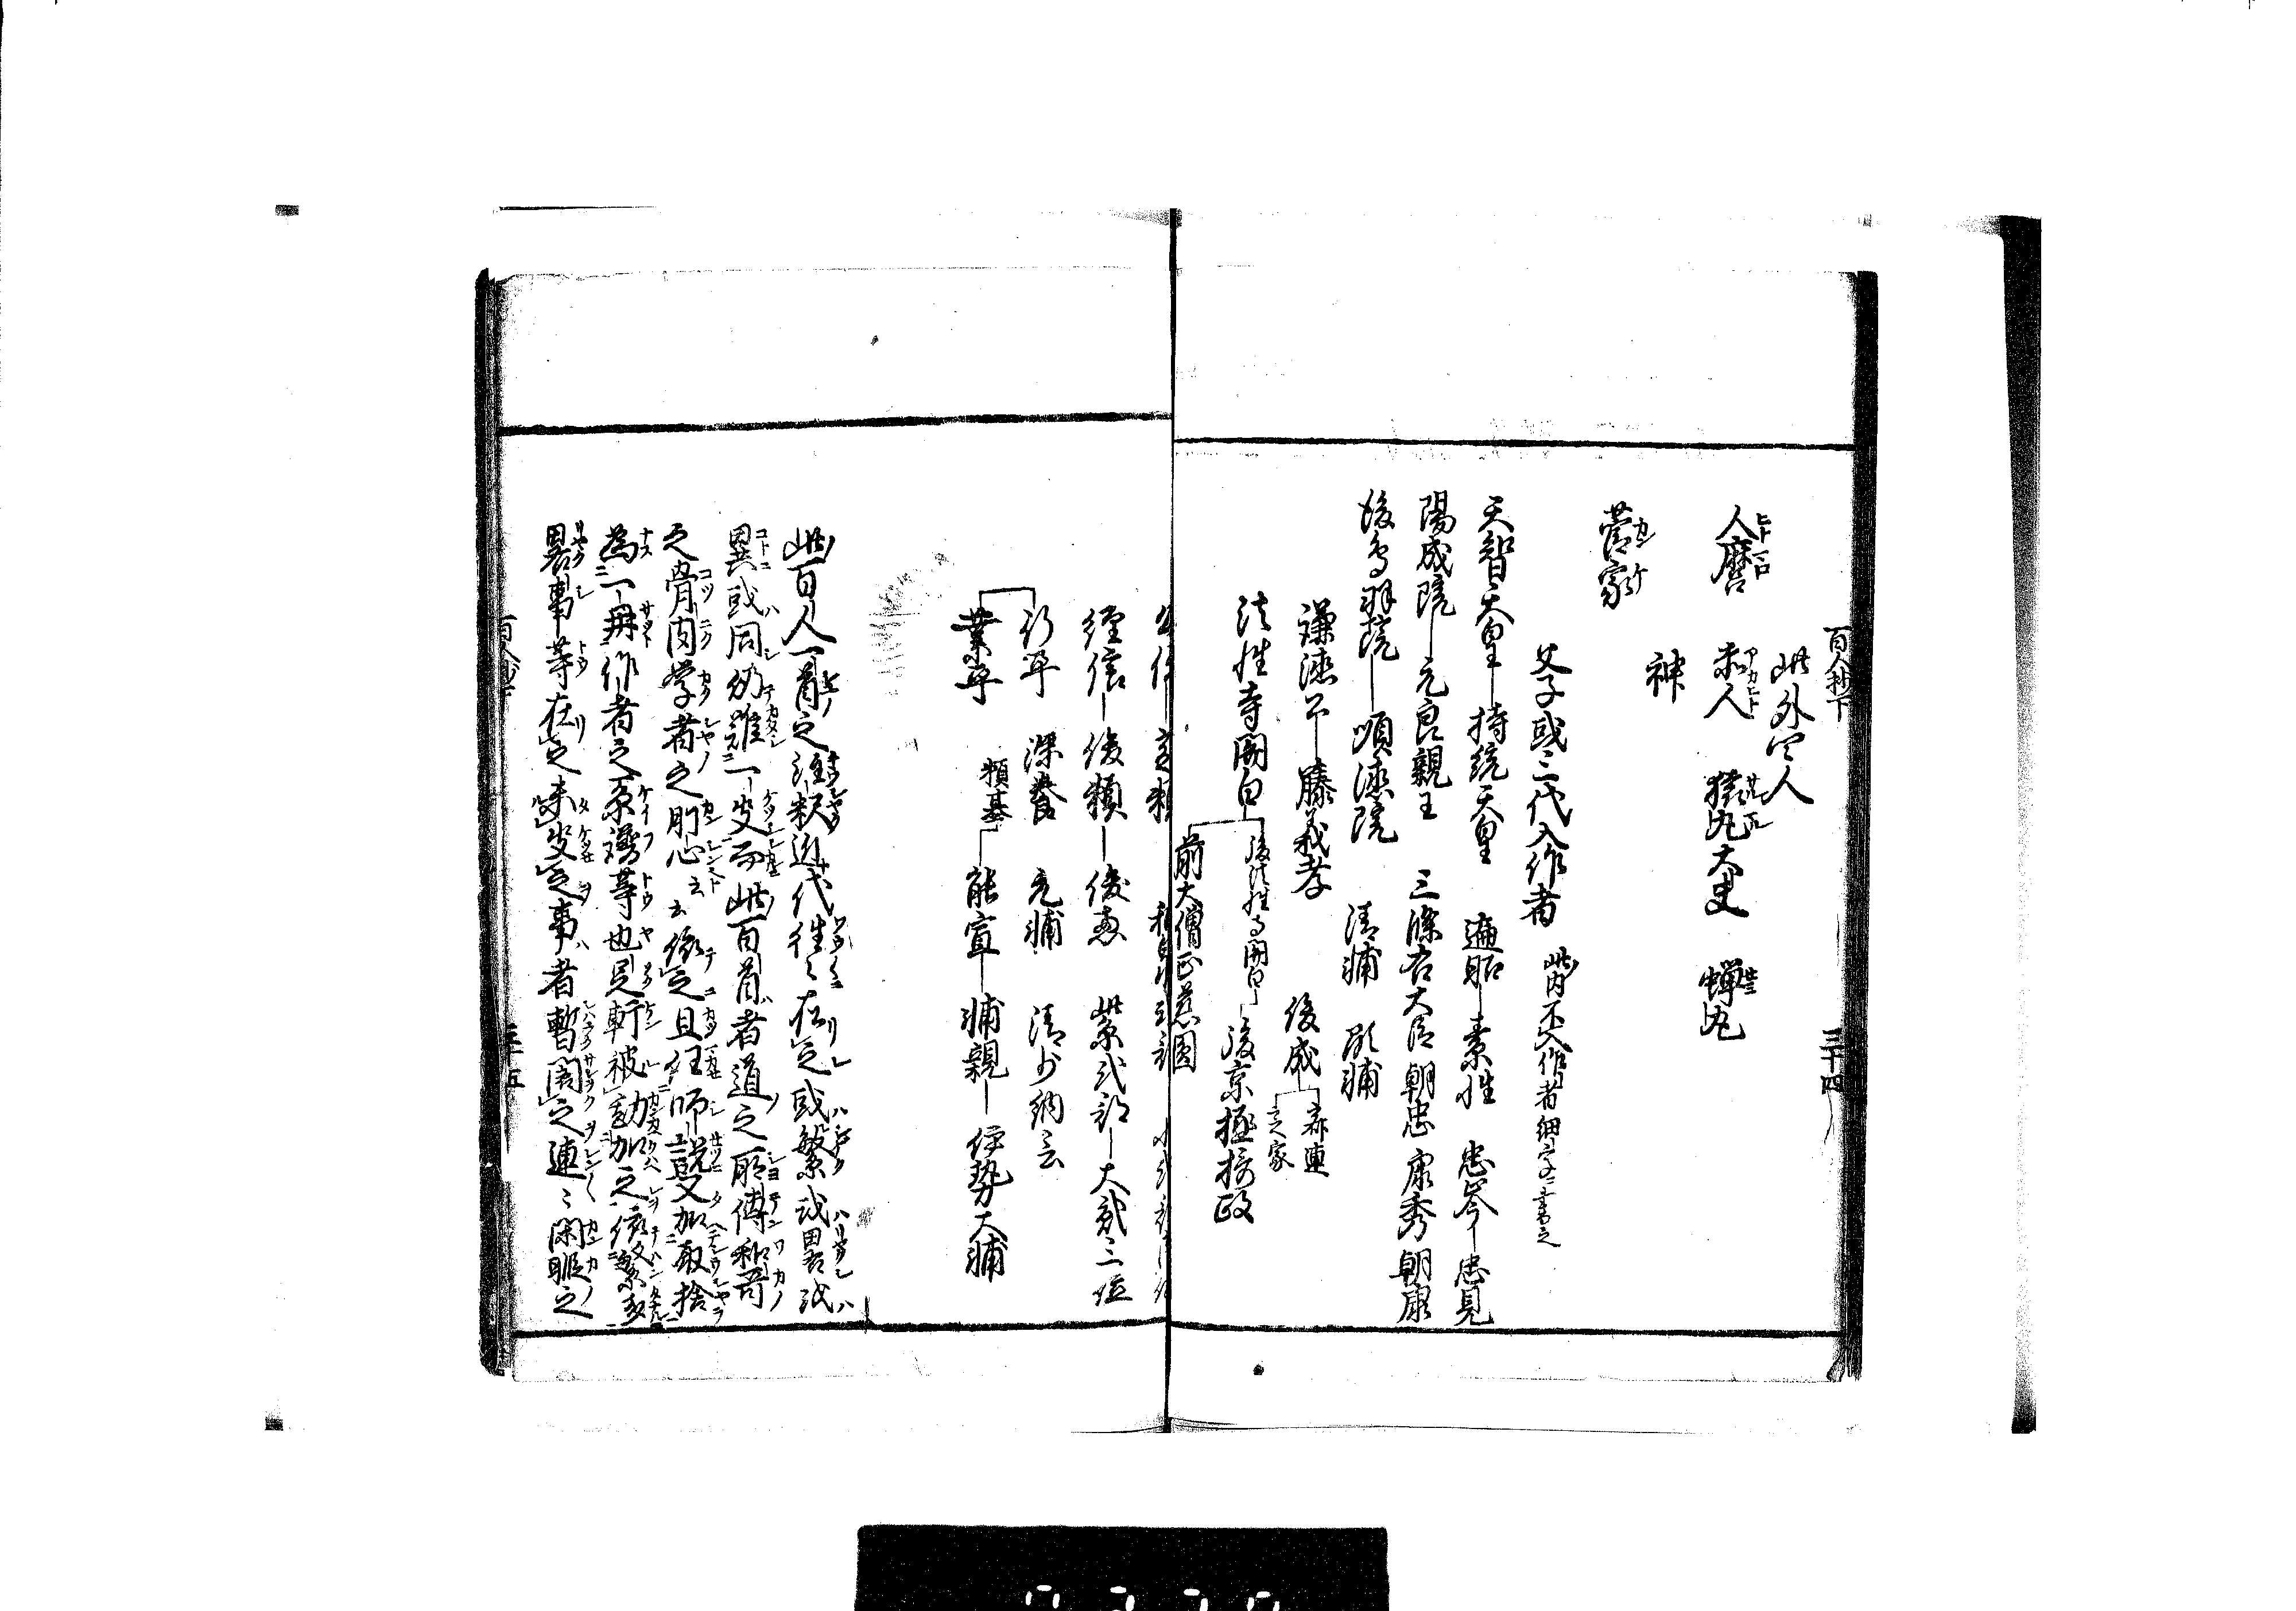 百人抄下 三十四
此外四人
人麿 赤人 猿丸大夫 蝉丸
神
菅家
父子或三代入作者 此内不入作者細字ニ書之
天智天皇―持統天皇 遍昭―素性 忠岑―忠見
陽成院―元良親王 三條右大臣 朝忠 康秀 朝康
後鳥羽院―順徳院 清輔 顕輔
謙徳公―藤義孝 俊成 寂蓮 定家
法性寺関白 後法性寺関白―後京極摂政
前大僧正慈圓
経信―俊頼―俊恵 紫式部―大貳三位
行平 深養 元輔 清少納言
業平 頼基―能宣―輔親―伊勢大輔
此百人一首之註釈近代往々在之或繁或畧或
異或同仍難一決而此百首者道之所傳和哥
之骨肉学者之肝心云云依之且任師説且又加取捨
為一冊作者之系譜等也足軒被勘加之依繁多
畧事等在之未決之事者暫閣之連々閑暇之
三十五